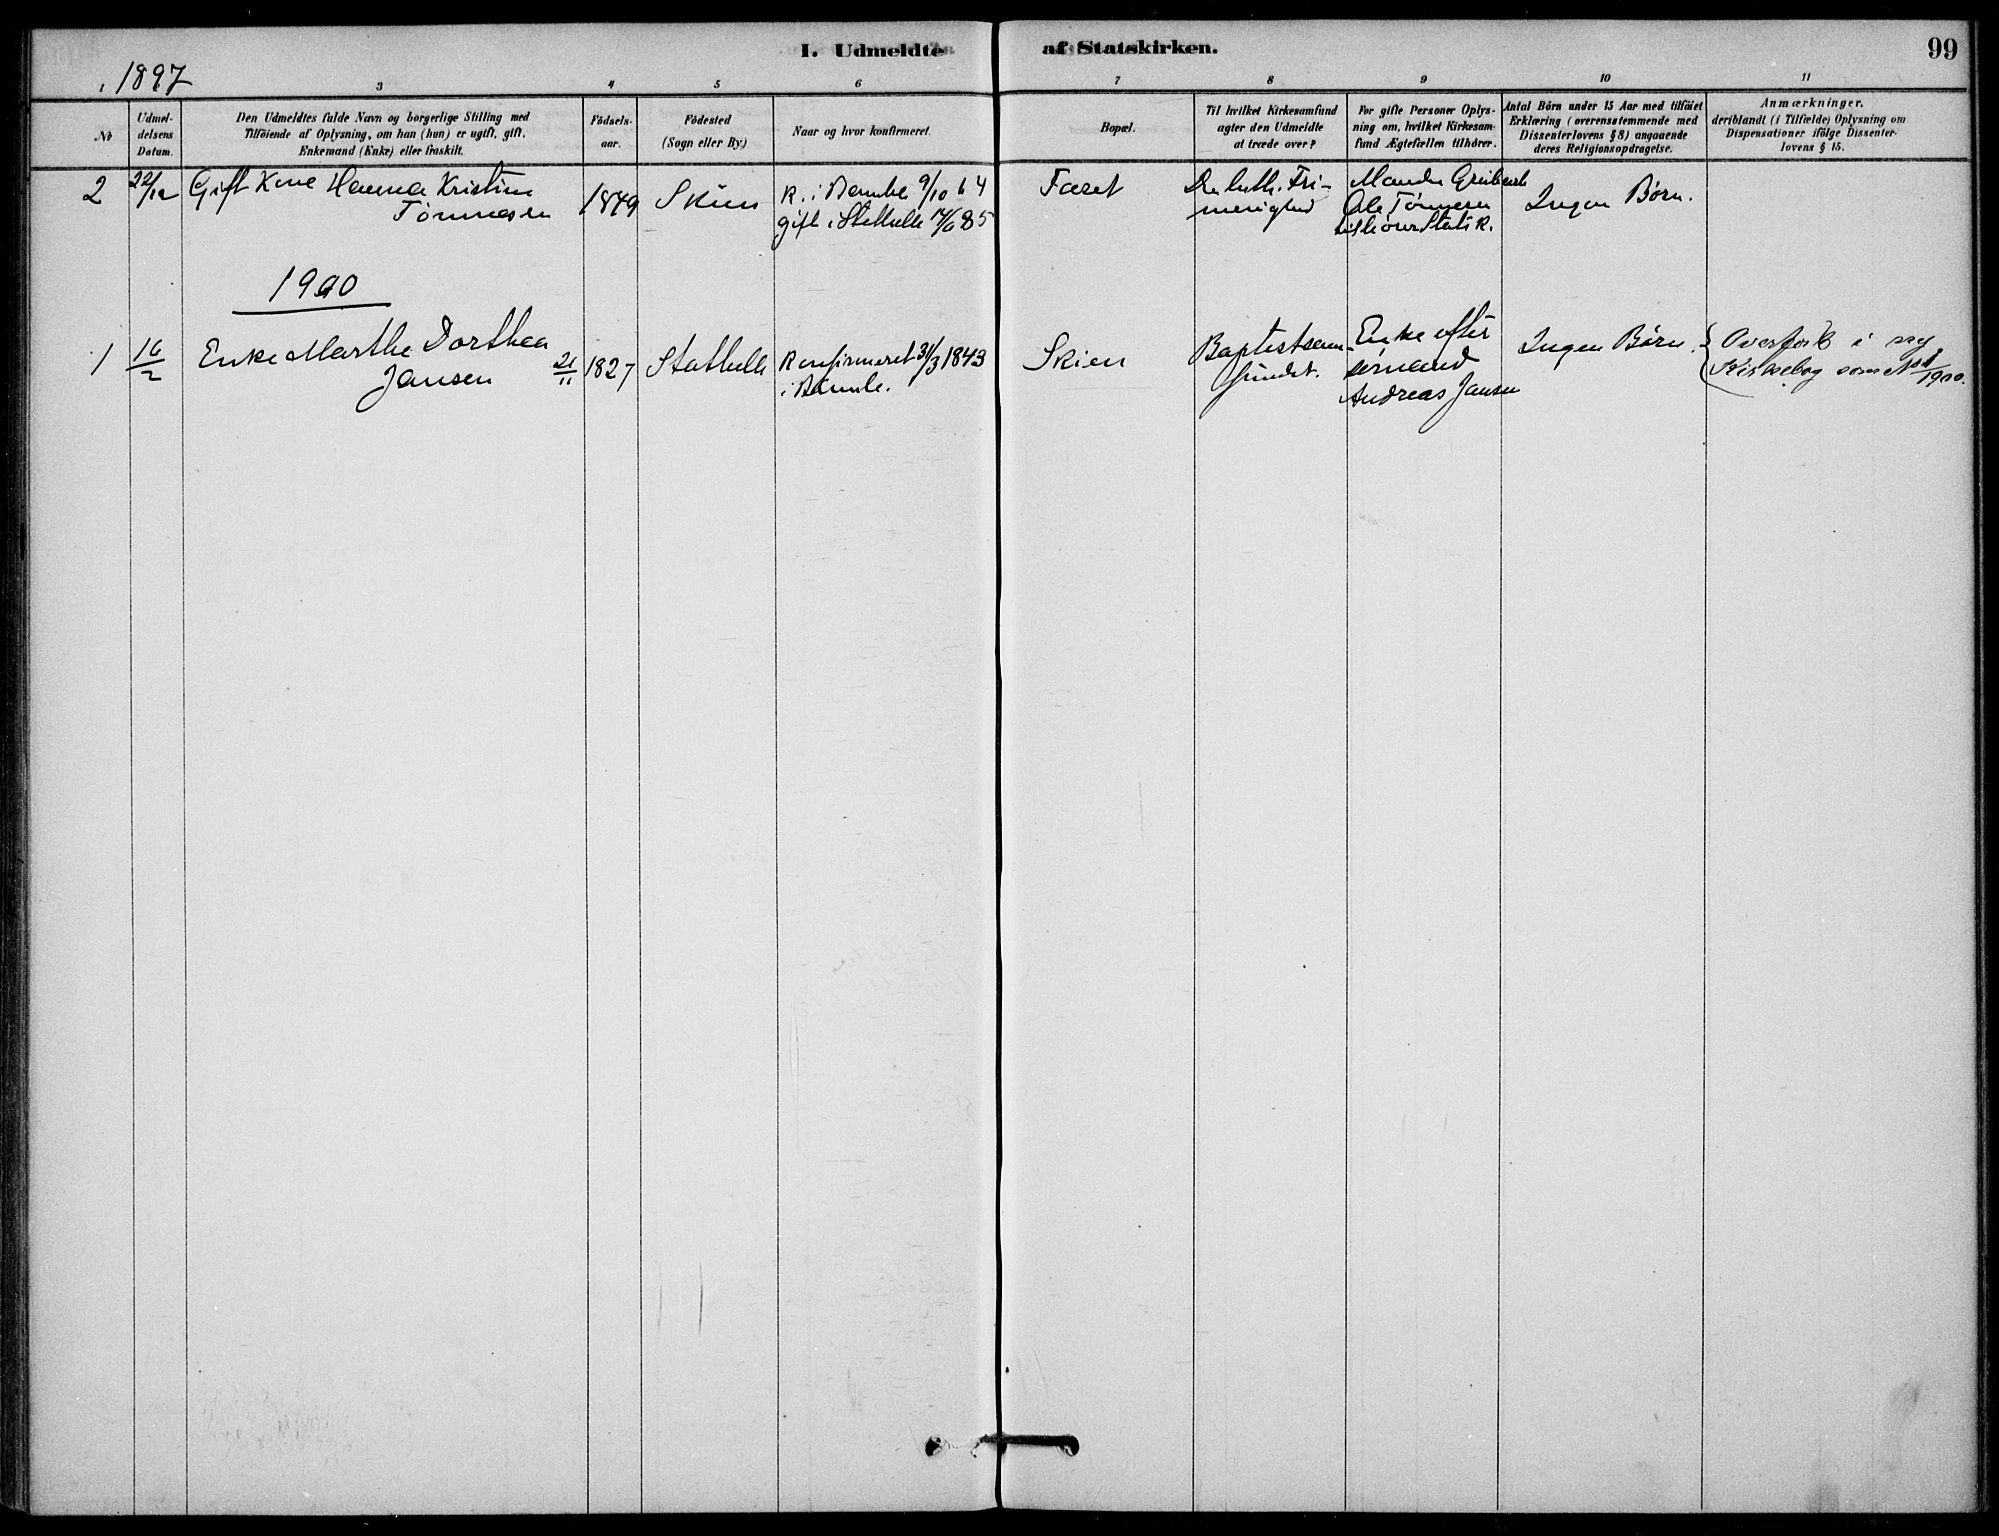 I. Udmeldte af Statskirken.
99
1897
3
4
5
6
7
8
9
10
11
No
Udmel-
delsens
Datum.
Den Udmeldtes fulde Navn og borgerlige Stilling med
Tilföiende af Oplysning, om han (hun) er ugift, gift,
Enkemand (Enke) eller fraskilt.
Födsels-
aar.
Födested
(Sogn eller By.)
Naar og hvor konfirmeret.
Bopæl.
Til hvilket Kirkesamfund
agter den Udmeldte
at træde over?
For gifte Personer Oplys-
ning om, hvilket Kirkesam-
fund Ægtefællen tilhörer.
Antal Börn under 15 Aar med tilföiet
Erklæring (overensstemmende med
Dissenterlovens § 8) angaaende
deres Religionsopdragelse.
Anmærkninger,
deriblandt (i Tilfælde) Oplysning om
Dispensationer ifölge Dissenter-
lovens § 15.
2
22/12
Gift Kone Hanna Kristine
Tönnesen
1849
Skien
K. i Bamble 9/10 64
gift i Stathelle 85
Faret
luth. Fri-
menighed
Manden
Ole Tönnesen
tilhører Statsk.
Ingen Børn.
1900
1
16/2
Enke Marthe Dorthea
Jansen
21/11
1827
Stathelle
Konfirmeret 31/3 1843
i Bamble.
Skien
Baptistsam-
fundet.
Enke efter
sömand
Andreas Jansen
Ingen Børn.
Overfört i ny
Kirkebog som No 1/1900.